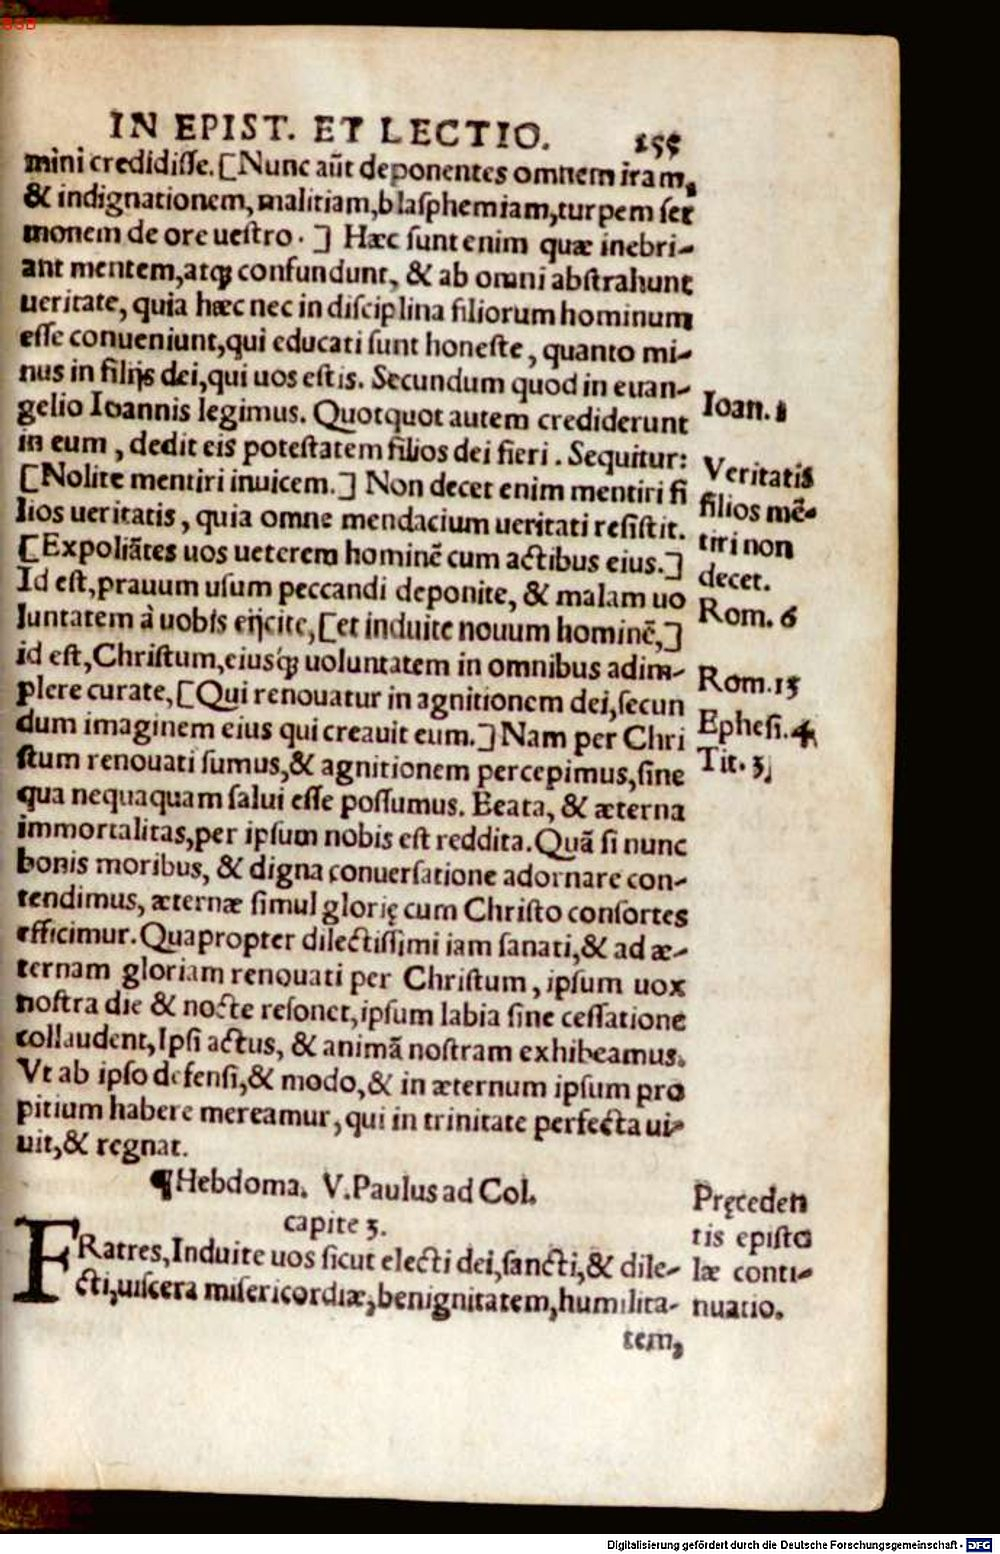 IN EPIST. ET LECTIO. 155
mini credidiſſe. [Nunc aũt deponentes omnem iram,
& indignationem, malitiam, blaſphemiam, turpem ſer
monem de ore ueſtro. ] Hæc ſunt enim quæ inebri-
ant mentem, atq́; confundunt, & ab omni abſtrahunt
ueritate, quia hæc nec in diſciplina filiorum hominum
eſſe conueniunt, qui educati ſunt honeſte, quanto mi-
nus in filijs dei, qui uos eſtis. Secundum quod in euan-
gelio Ioannis legimus. Quotquot autem crediderunt
in eum, dedit eis poteſtatem filios dei fieri. Sequitur:
[Nolite mentiri inuicem.] Non decet enim mentiri fi
lios ueritatis, quia omne mendacium ueritati reſiſtit.
[Expoliãtes uos ueterem hominẽ cum actibus eius.]
Id eſt, prauum uſum peccandi deponite, & malam uo
luntatem à uobis eijcite, [et induite nouum hominẽ,]
id eſt, Chriſtum, eiusq́; uoluntatem in omnibus adim-
plere curate, [Qui renouatur in agnitionem dei, ſecun
dum imaginem eius qui creauit eum.] Nam per Chri
ſtum renouati ſumus, & agnitionem percepimus, ſine
qua nequaquam ſalui eſſe poſſumus. Beata, & æterna
immortalitas, per ipſum nobis eſt reddita. Quã ſi nunc
bonis moribus, & digna conuerſatione adornare con-
tendimus, æternæ ſimul glorię cum Chriſto conſortes
efficimur. Quapropter dilectiſſimi iam ſanati, & ad æ-
ternam gloriam renouati per Chriſtum, ipſum uox
noſtra die & nocte reſonet, ipſum labia ſine ceſſatione
collaudent, Ipſi actus, & animã noſtram exhibeamus.
Vt ab ipſo defenſi, & modo, & in æternum ipſum pro
pitium habere mereamur, qui in trinitate perfecta ui-
uit, & regnat.
¶Hebdoma. V. Paulus ad Col.
capite 3.
FRatres, Induite uos ſicut electi dei, ſancti, & dile-
cti, uiſcera miſericordiæ, benignitatem, humilita-
tem,
Ioan. 1
Veritatis
filios mẽ-
tiri non
decet.
Rom. 6
Rom. 13
Epheſi. 4
Tit. 3
Pręceden
tis epiſto
læ conti-
nuatio.
Digitalisierung gefördert durch die Deutsche Forschungsgemeinschaft - DFG